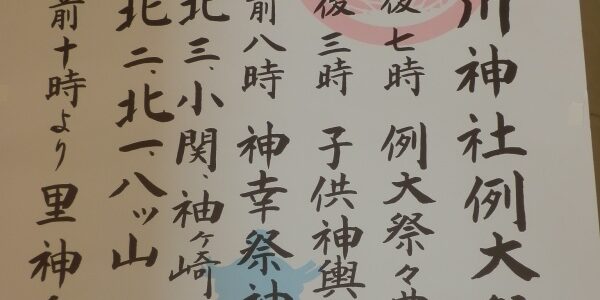 川神社例大
後七時 例大祭々典
後三時 子供神輿
前八時 神幸祭神
北三、小関、袖ヶ崎
北二、北一、八ッ山
前十時より 里神